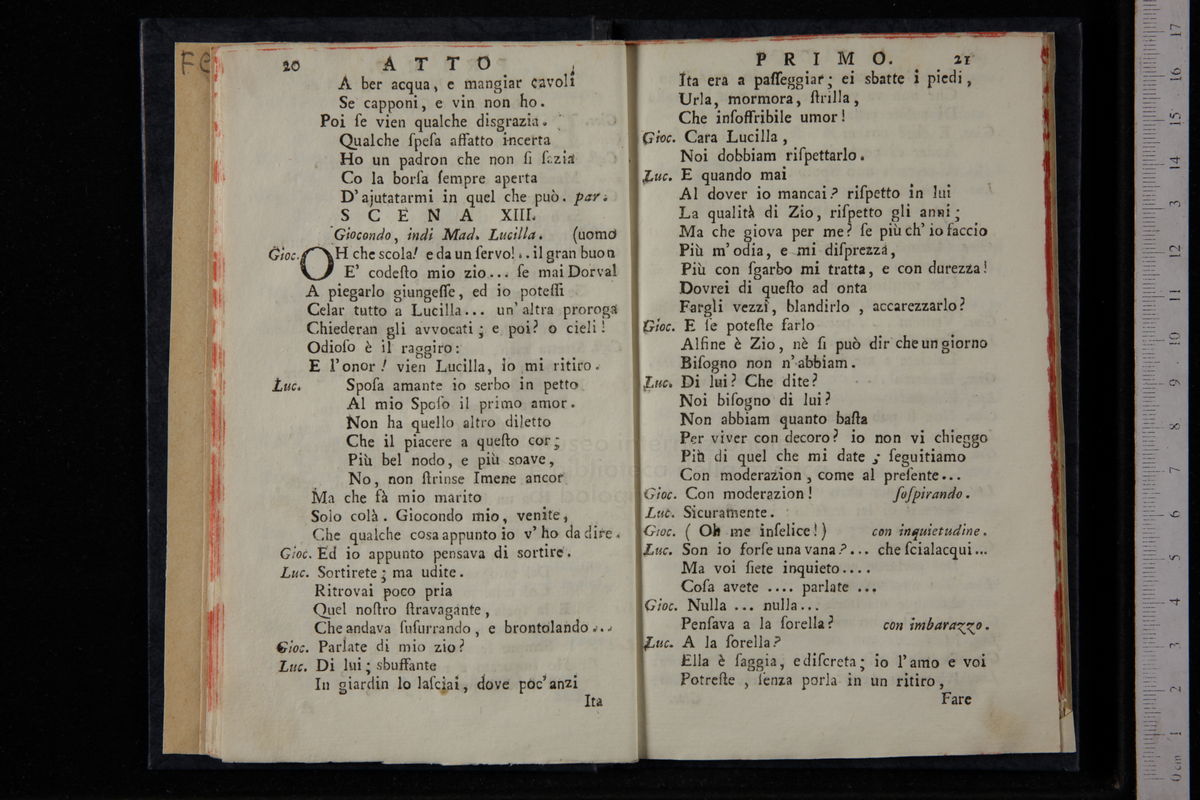 Fe
20 ATTO
A ber acqua, e mangiar cavoli
Se capponi, e vin non ho.
Poi ſe vien qualche disgrazia.
Qualche ſpeſa affatto incerta
Ho un padron che non ſi ſazia
Co la borſa ſempre aperta
D'ajutatarmi in quel che può. par.
SCENA XIII.
Giocondo, indi Mad. Lucilla. (uomo
Gioc. OH che scola! e da un ſervo!.. il gran buon
E' codeſto mio zio... ſe mai Dorval
A piegarlo giungeſſe, ed io poteſſi
Celar tutto a Lucilla... un'altra proroga
Chiederan gli avvocati; e poi? o cieli!
Odioſo è il raggiro:
E l'onor! vien Lucilla, io mi ritiro.
Luc. Spoſa amante io serbo in petto
Al mio Spoſo il primo amor.
Non ha quello altro diletto
Che il piacere a queſto cor;
Più bel nodo, e più soave,
No, non ſtrinse Imene ancor
Ma che fà mio marito
Solo colà. Giocondo mio, venite,
Che qualche cosa appunto io v'ho da dire.
Gioc. Ed io appunto pensava di sortire.
Luc. Sortirete; ma udite.
Ritrovai poco pria
Quel noſtro ſtravagante,
Che andava ſuſurrando, e brontolando...
Gioc. Parlate di mio zio?
Luc. Di lui; sbuffante
In giardin lo laſciai, dove poc'anzi
Ita
PRIMO. 21
Ita era a paſſeggiar; ei sbatte i piedi,
Urla, mormora, ſtrilla,
Che inſoffribile umor!
Gioc. Cara Lucilla,
Noi dobbiam riſpettarlo.
Luc. E quando mai
Al dover io mancai? riſpetto in lui
La qualità di Zio, riſpetto gli anni;
Ma che giova per me? ſe più ch'io faccio
Più m'odia, e mi diſprezza,
Più con ſgarbo mi tratta, e con durezza!
Dovrei di queſto ad onta
Fargli vezzi, blandirlo, accarezzarlo?
Gioc. E ſe poteſte farlo
Alfine è Zio, nè ſi può dir che un giorno
Biſogno non n'abbiam.
Luc. Di lui? Che dite?
Noi biſogno di lui?
Non abbiam quanto baſta
Per viver con decoro? io non vi chieggo
Più di quel che mi date; ſeguitiamo
Con moderazion, come al preſente...
Gioc. Con moderazion! ſoſpirando.
Luc. Sicuramente.
Gioc. (Oh me infelice!) con inquietudine.
Luc. Son io forſe una vana?... che ſcialacqui...
Ma voi ſiete inquieto....
Coſa avete .... parlate ...
Gioc. Nulla ... nulla...
Penſava a la ſorella? con imbarazzo.
Luc. A la ſorella?
Ella è ſaggia, e diſcreta; io l'amo e voi
Potreſte, ſenza porla in un ritiro,
Fare
0 cm 1 2 3 4 5 6 7 8 9 10 11 12 13 14 15 16 17